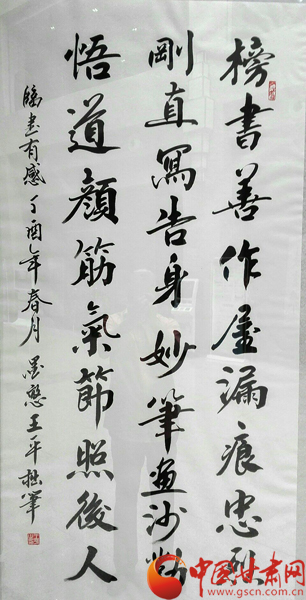 榜書善作屋漏痕忠烈
剛直寫告身妙筆畫沙斷
悟道顏筋氣節照後人
臨書有感丁酉年春月墨憨王平拙筆
中国甘肃网
www.gscn.com.cn